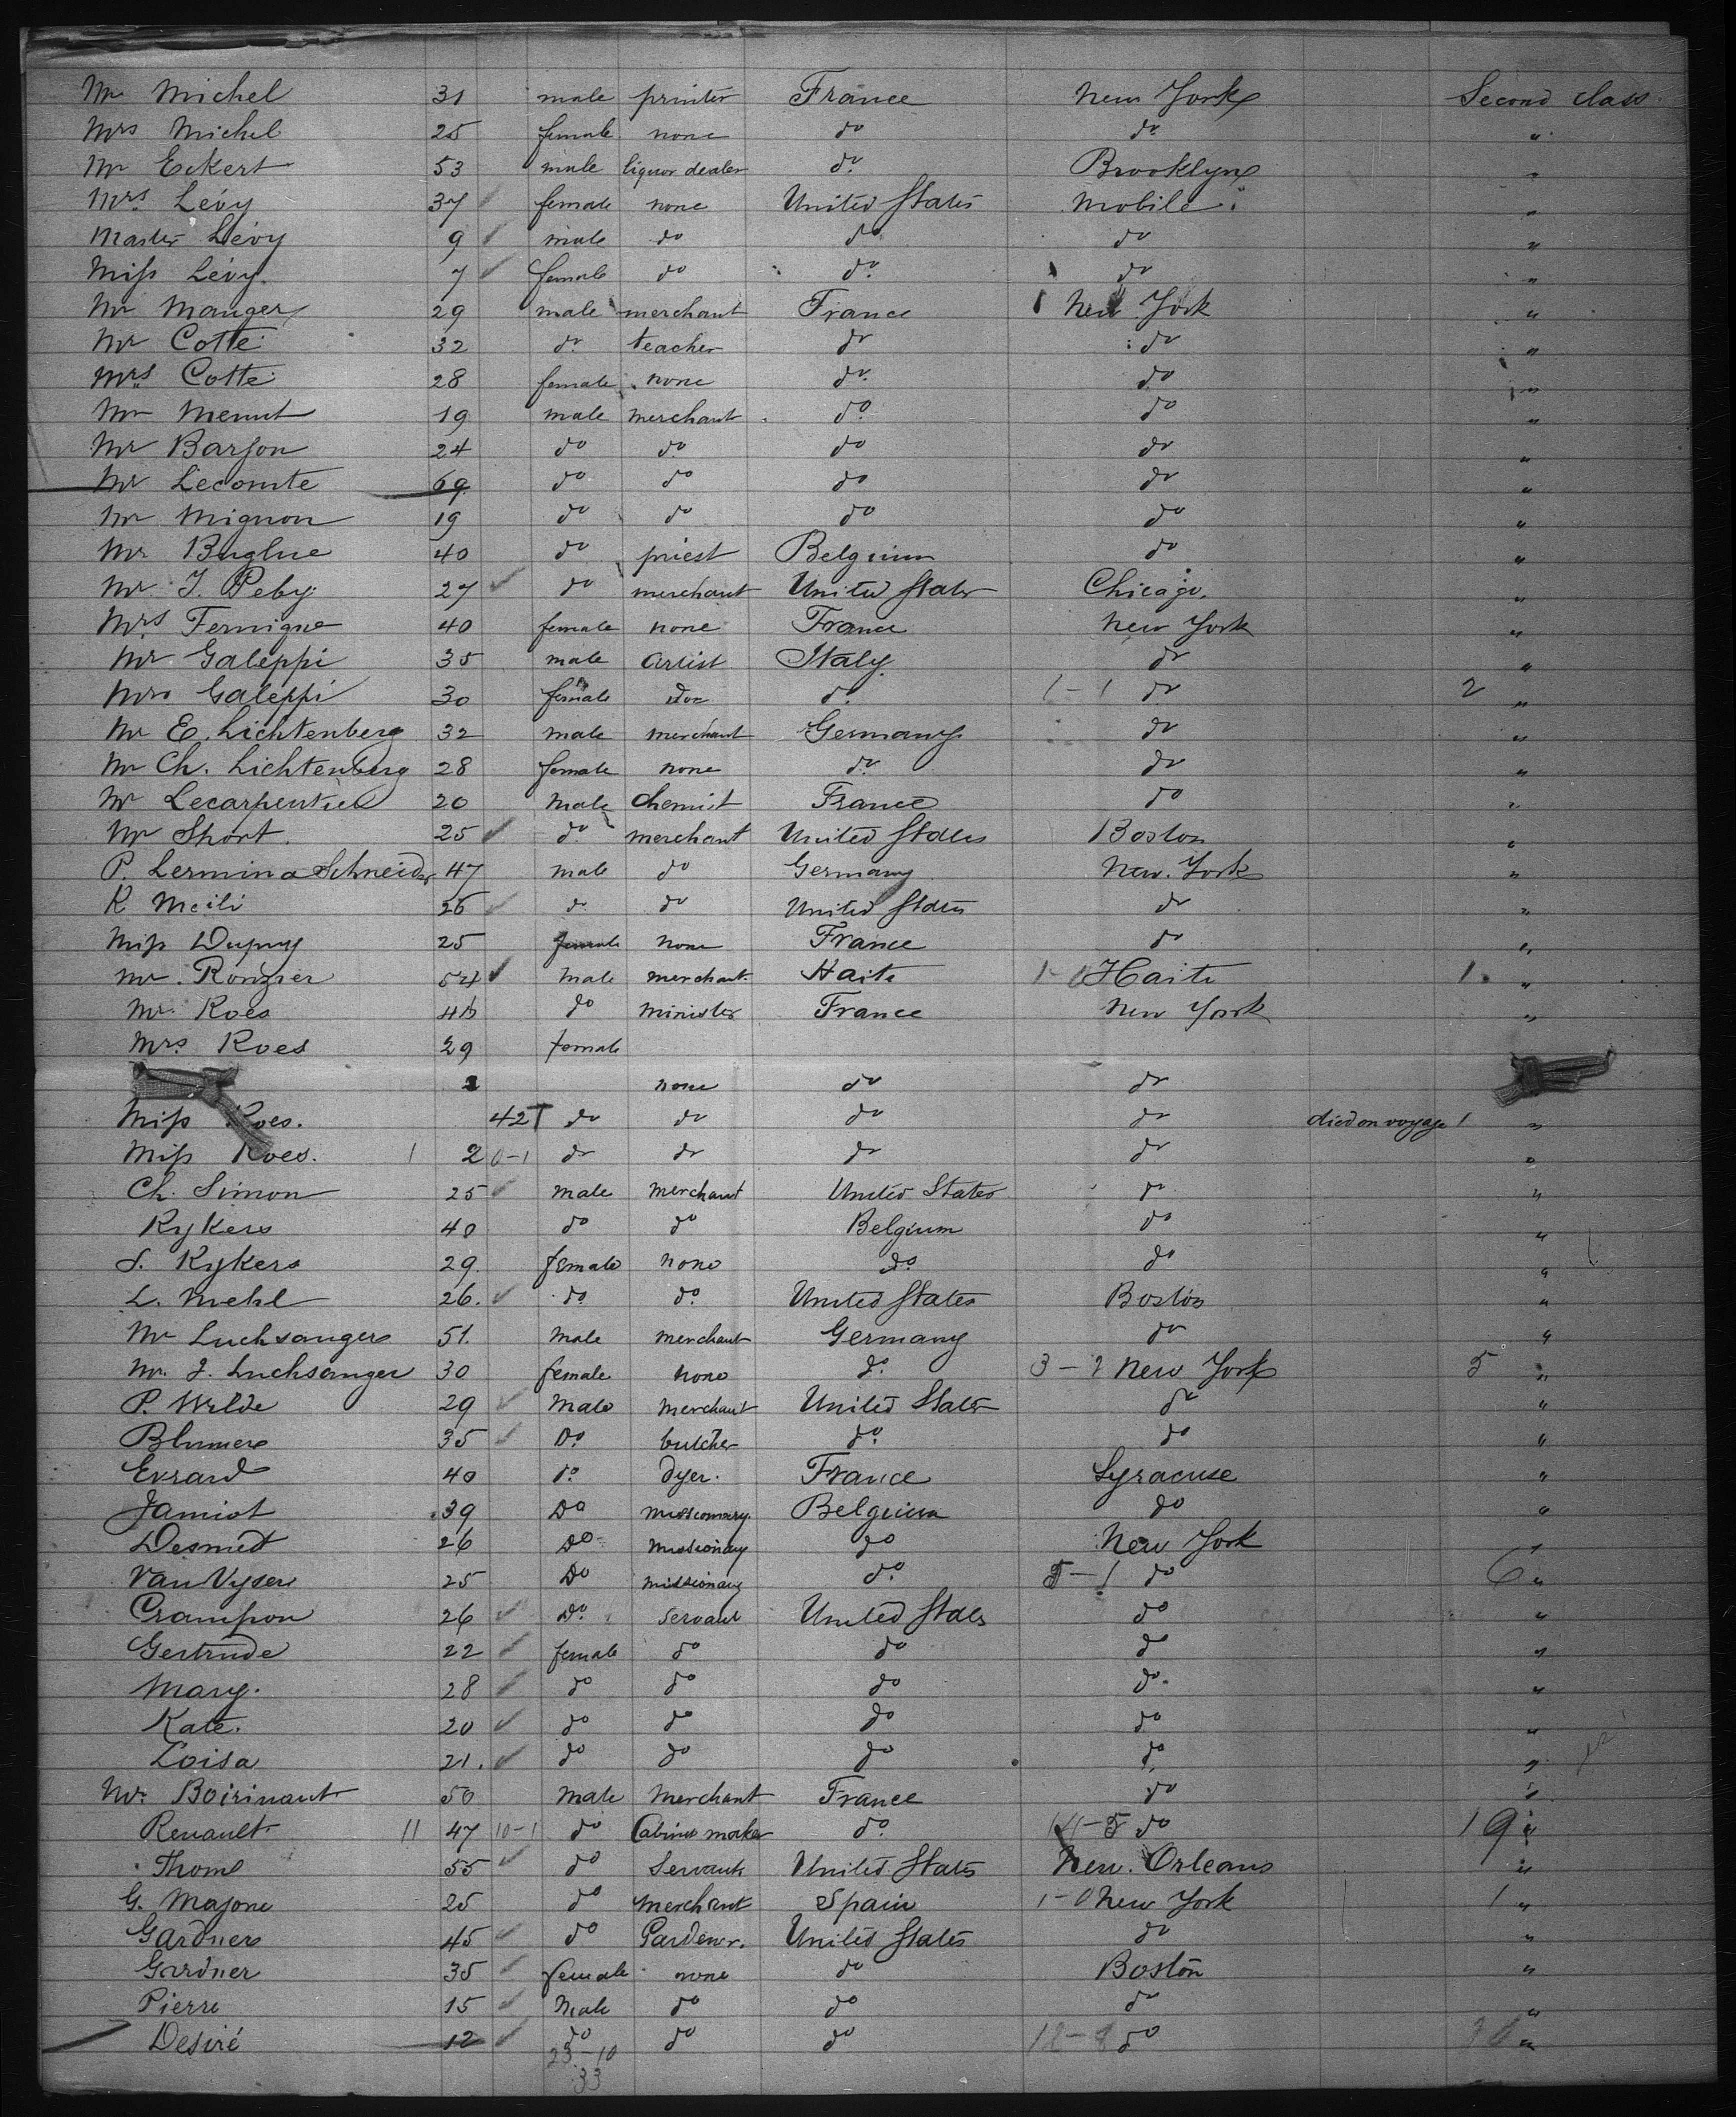 Mr Michel 31 male printer France New York Second class
Mrs Michel 25 female none do do "
Mr Eckert 53 male liquor dealer do Brooklyn "
Mrs Levy 37 female none United States Mobile "
Master Lévy 9 male do do do "
Miss Lévy. 7 female do do do "
Mr Manger 29 male merchant France New York "
Mr Cotte 32 do teacher do do "
Mrs Cotte 28 female none do do "
Mr Menut 19 male merchant do do "
Mr Barson 24 do do do do "
Mr Lecomte 69 do do do do "
Mr Mignon 19 do do do do "
Mr 40 do priest Belgium do "
Mr. J. Peby 27 do merchant United States Chicago. "
Mrs Fernique 40 female none France New York "
Mr Galeppi 35 male Artist Italy do "
Mrs Galeppi 30 female do 1-1 do 2 "
Mr E. Lichtenberg 32 male merchant Germany do "
Mr Ch. Lichtenberg 28 female none do do "
Mr Lecarpentier 20 male chemist France do "
Mr Short. 25 do merchant United States Boston "
P. Lermina Schneider 47 male do Germany New York "
R Meili 26 do do United States do "
Miss Dupuy 25 female none France do "
Mr. Ronzier 54 male merchant Haiti 1-0 Haiti 1. "
Mr. Roes do minister France New York "
Mrs. Roes 29 female
none do do
Miss Roes. 42T do do do do died on voyage 1 "
Miss Roes. 1 2 0-1 do do do do "
Ch. Simon 25 male merchant United States do "
Rykers 40 do do Belgium do "
S. Rykers 29. female none do do "
L. 26. do do United States Boston "
Mr Luchsanger 51. male merchant Germany do "
Mr. J. Luchsanger 30 female none do 3-2 New York 5 "
P. Wilde 29 male merchant United States do "
Blumer 35 Do butcher do do "
Evrard 40 do dyer. France Syracuse "
Jamiot 39 Do missionary Belgium do "
Desmet 26 Do missionary do New York "
25 Do missionary do 5-1 do 6 "
Crampon 26 Do. servant United States do "
Gertrude 22 female do do do "
Mary. 28 do do do do. "
Kate. 20 do do do do "
Loisa 21. do do do do "
Mr. Boirinaut 50 male merchant France do "
Renault 11 47 10-1 do Cabinet maker do 14-5 do 19 "
Thom 55 do Servant United States New. Orleans "
G. Majone 25 do merchant Spain 1-0 New York 1 "
Gardner 45 do Gardener. United States do "
Gardner 35 female none do Boston "
Pierre 15 male do do do "
Desiré 12 do do do do "
23-10
33